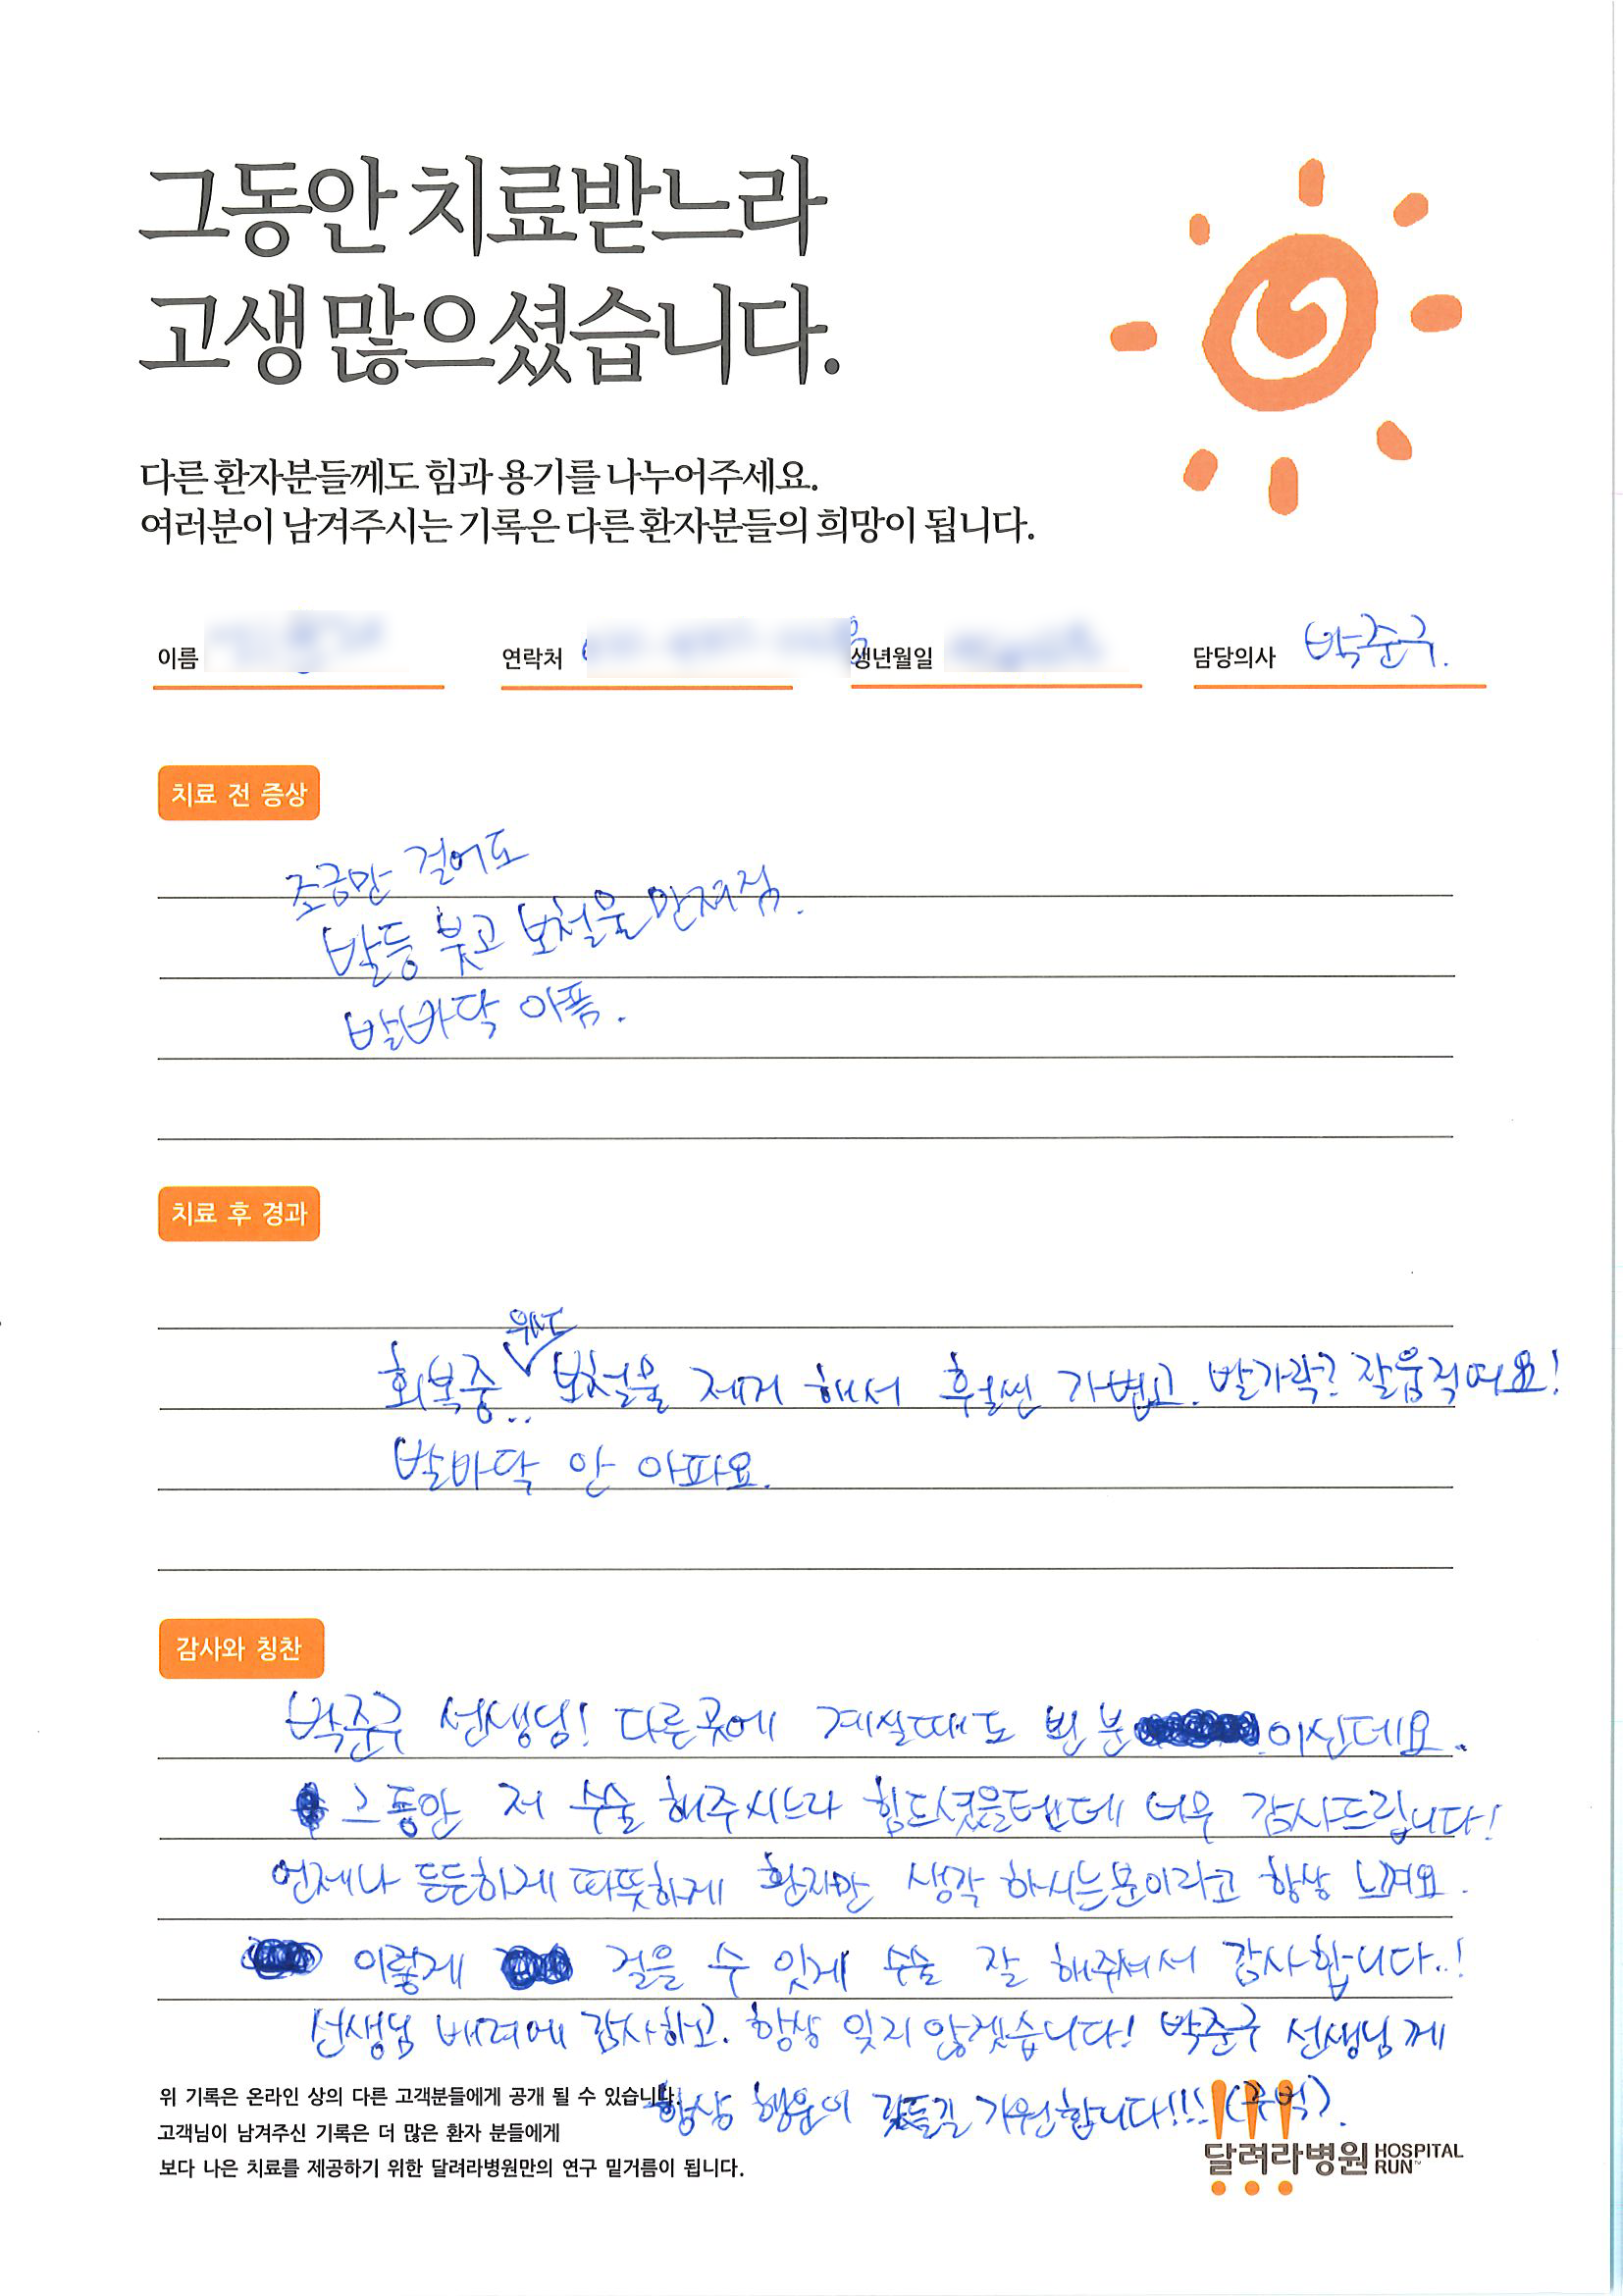 그동안 치료받느라
고생 많으셨습니다.
다른 환자분들께도 힘과 용기를 나누어주세요.
여러분이 남겨주시는 기록은 다른 환자분들의 희망이 됩니다.
이름 연락처 생년월일 담당의사 박준구.
치료 전 증상
조금만 걸어도
발등 붓고 보철물 만져짐.
발바닥 아픔.
치료 후 경과
우선도
회복중.. 보철물 제거 해서 훨씬 가볍고. 발가락? 잘움직여요!
발바닥 안 아파요.
감사와 칭찬
박준구 선생님! 다른곳에 계실때도 뵌 분 이신데요.
그동안 저 수술 해주시느라 힘드셨을텐데 너무 감사드립니다!
언제나 든든하게 따뜻하게 환자만 생각 하시는분이라고 항상 느껴요.
이렇게 걸을 수 잇게 수술 잘 해주셔서 감사합니다..!
선생님 배려에 감사하고. 항상 잊지 않겟습니다! 박준구 선생님께
항상 행운이 깃들길 기원합니다!!! (꾸벅).
위 기록은 온라인 상의 다른 고객분들에게 공개 될 수 있습니다.
고객님이 남겨주신 기록은 더 많은 환자 분들에게
보다 나은 치료를 제공하기 위한 달려라병원만의 연구 밑거름이 됩니다.
달려라병원 HOSPITAL RUN™